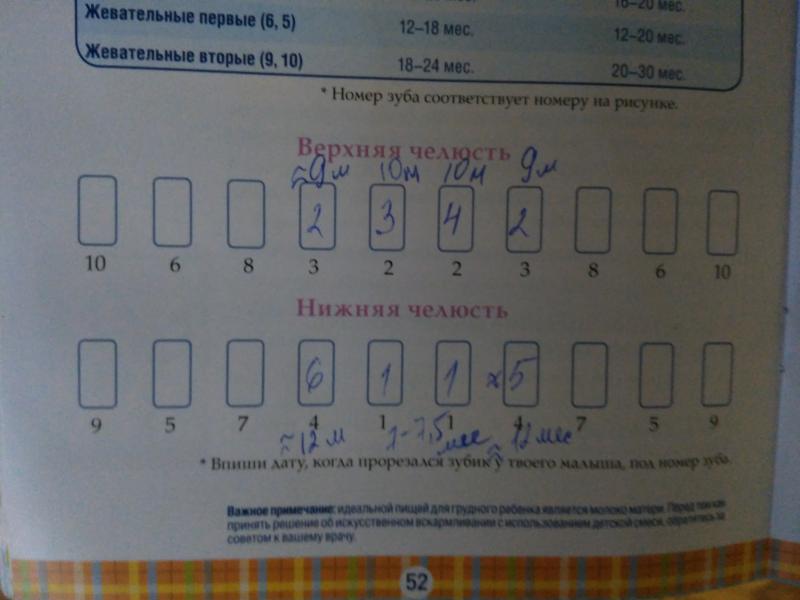 16–20 мес.
Жевательные первые (6, 5) 12–18 мес. 12–20 мес.
Жевательные вторые (9, 10) 18–24 мес. 20–30 мес.
* Номер зуба соответствует номеру на рисунке.
Верхняя челюсть
≈9м 10м 10м 9м
2 3 4 2
10 6 8 3 2 2 3 8 6 10
Нижняя челюсть
6 1 1 5
9 5 7 4 1 1 4 7 5 9
≈12м 7-7,5 мес ≈12мес
* Впиши дату, когда прорезался зубик у твоего малыша, под номер зуба.
Важное примечание: идеальной пищей для грудного ребенка является молоко матери. Перед тем как
принять решение об искусственном вскармливании с использованием детской смеси, обратитесь за
советом к вашему врачу.
52